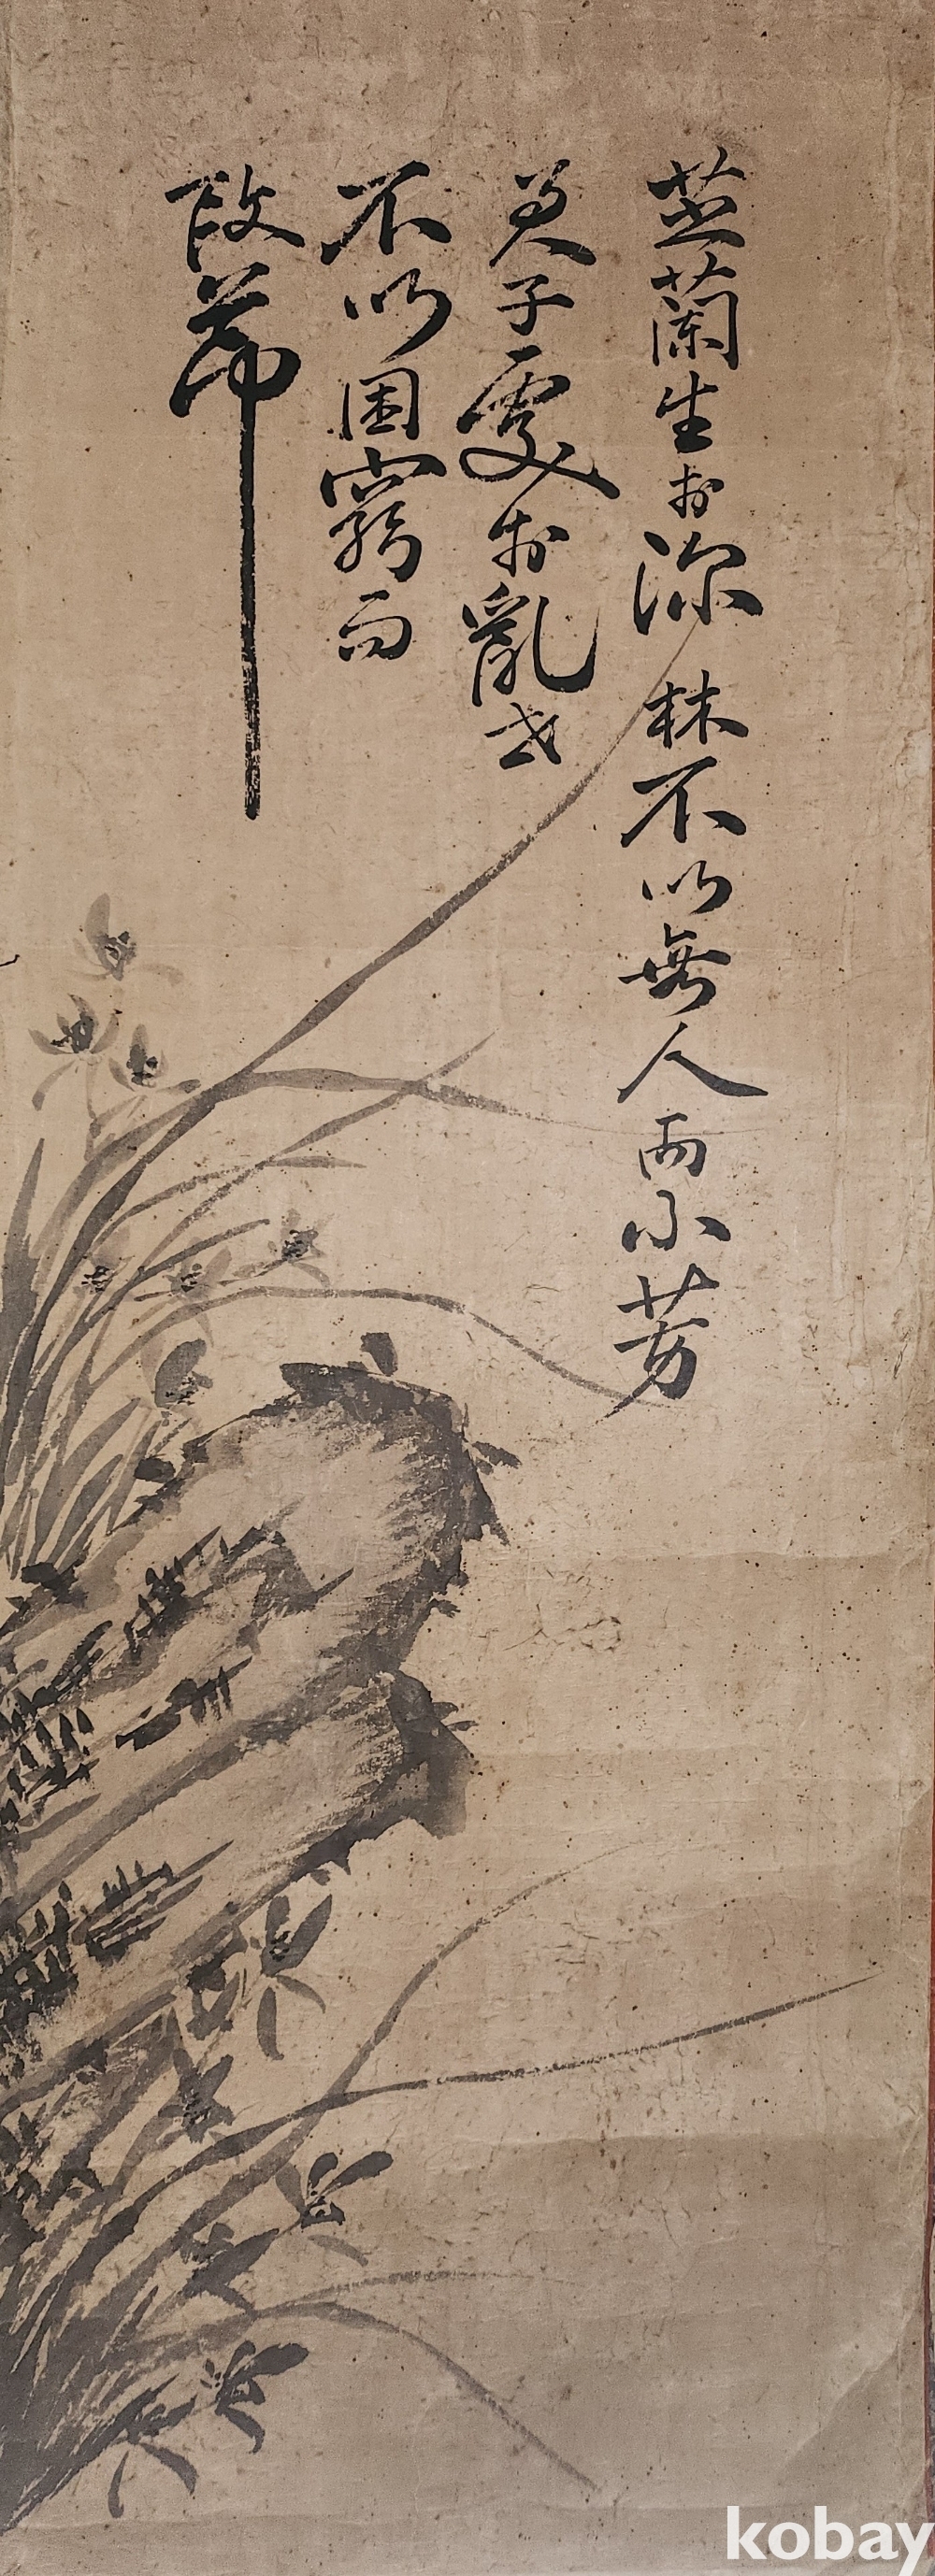 芝蘭生於深林不以無人而不芳
君子處於亂世
不以困窮而
改節
kobay